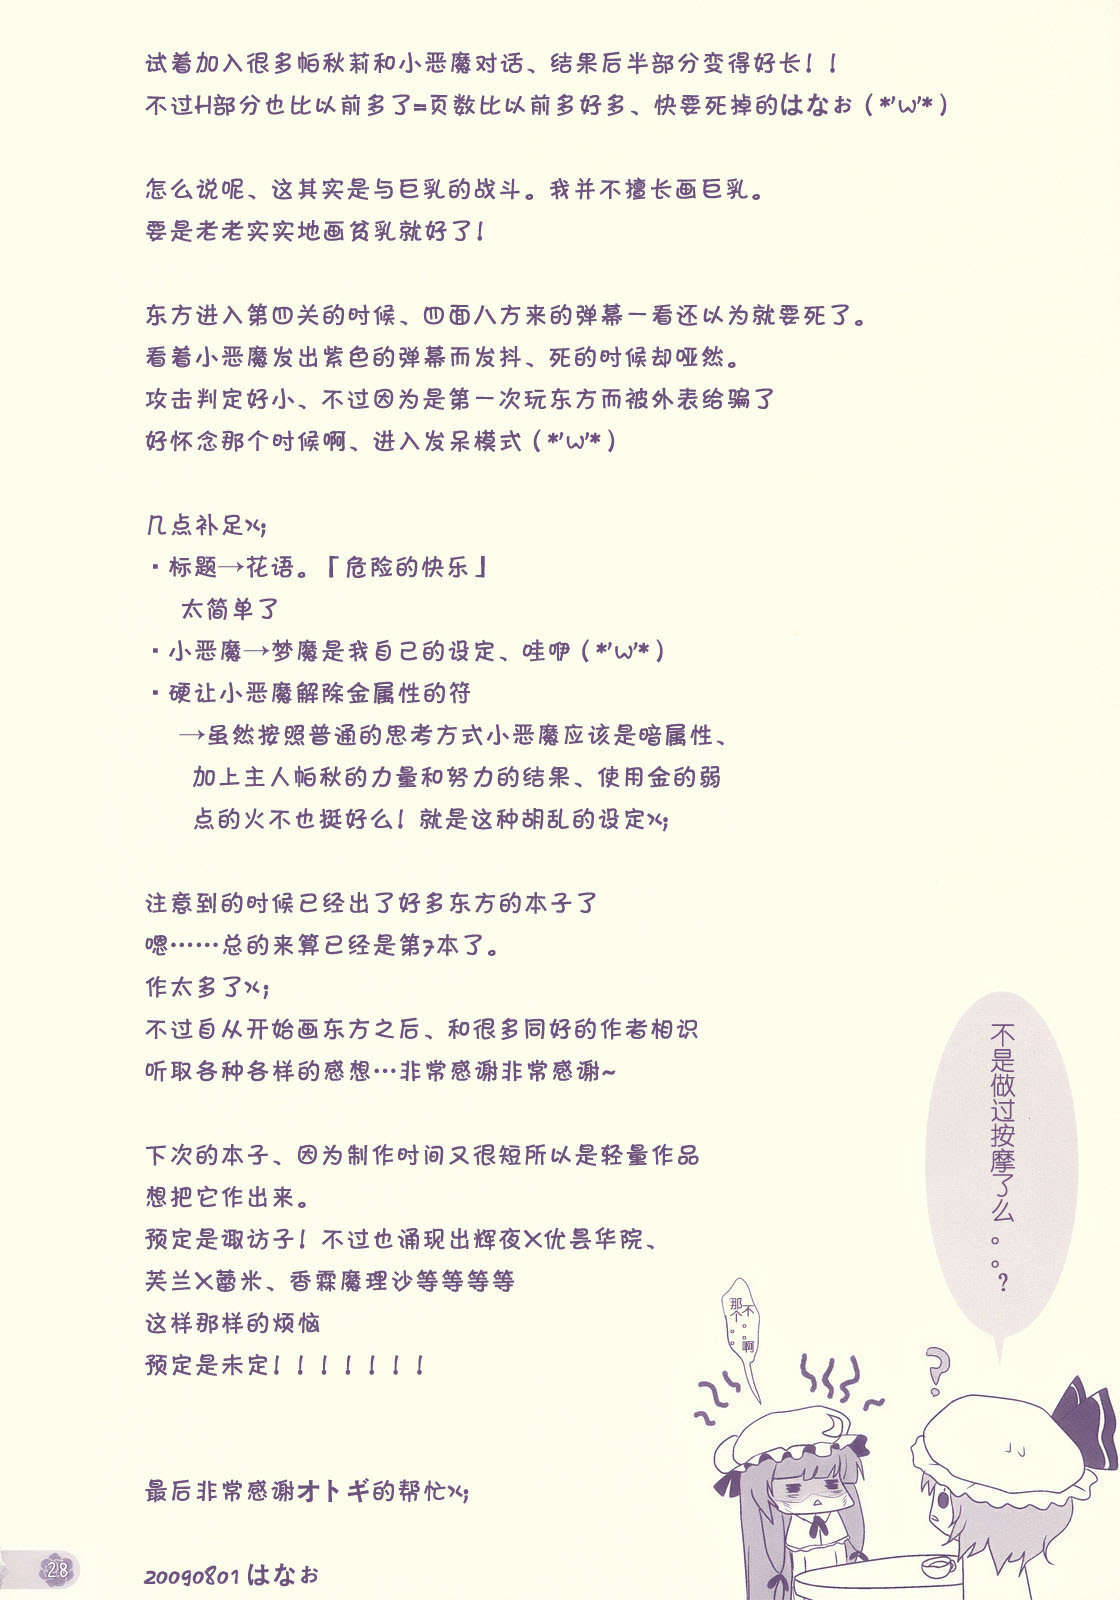 试着加入很多帕秋莉和小恶魔对话、结果后半部分变得好长！！
不过H部分也比以前多了=页数比以前多好多、快要死掉的はなぉ（*'ω'*）
怎么说呢、这其实是与巨乳的战斗。我并不擅长画巨乳。
要是老老实实地画贫乳就好了！
东方进入第四关的时候、四面八方来的弹幕一看还以为就要死了。
看着小恶魔发出紫色的弹幕而发抖、死的时候却哑然。
攻击判定好小、不过因为是第一次玩东方而被外表给骗了
好怀念那个时候啊、进入发呆模式（*'ω'*）
几点补足x;
・标题→花语。「危险的快乐」
太简单了
・小恶魔→梦魔是我自己的设定、哇咿（*'ω'*）
・硬让小恶魔解除金属性的符
→虽然按照普通的思考方式小恶魔应该是暗属性、
加上主人帕秋的力量和努力的结果、使用金的弱
点的火不也挺好么！就是这种胡乱的设定x;
注意到的时候已经出了好多东方的本子了
嗯……总的来算已经是第7本了。
作太多了x;
不过自从开始画东方之后、和很多同好的作者相识
听取各种各样的感想…非常感谢非常感谢~
下次的本子、因为制作时间又很短所以是轻量作品
想把它作出来。
预定是诹访子！不过也涌现出辉夜X优昙华院、
芙兰X蕾米、香霖魔理沙等等等等
这样那样的烦恼
预定是未定！！！！！！！
不是做过按摩了么。。？
不。。啊
那个。。
最后非常感谢オトギ的帮忙x;
20090801 はなぉ
28